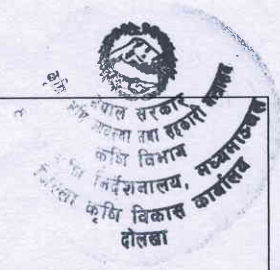 नेपाल सरकार
तथा सहकारी
कृषि विभाग
कृषि निर्देशनालय, मध्यमाञ्चल
जिल्ला कृषि विकास कार्यालय
दोलखा